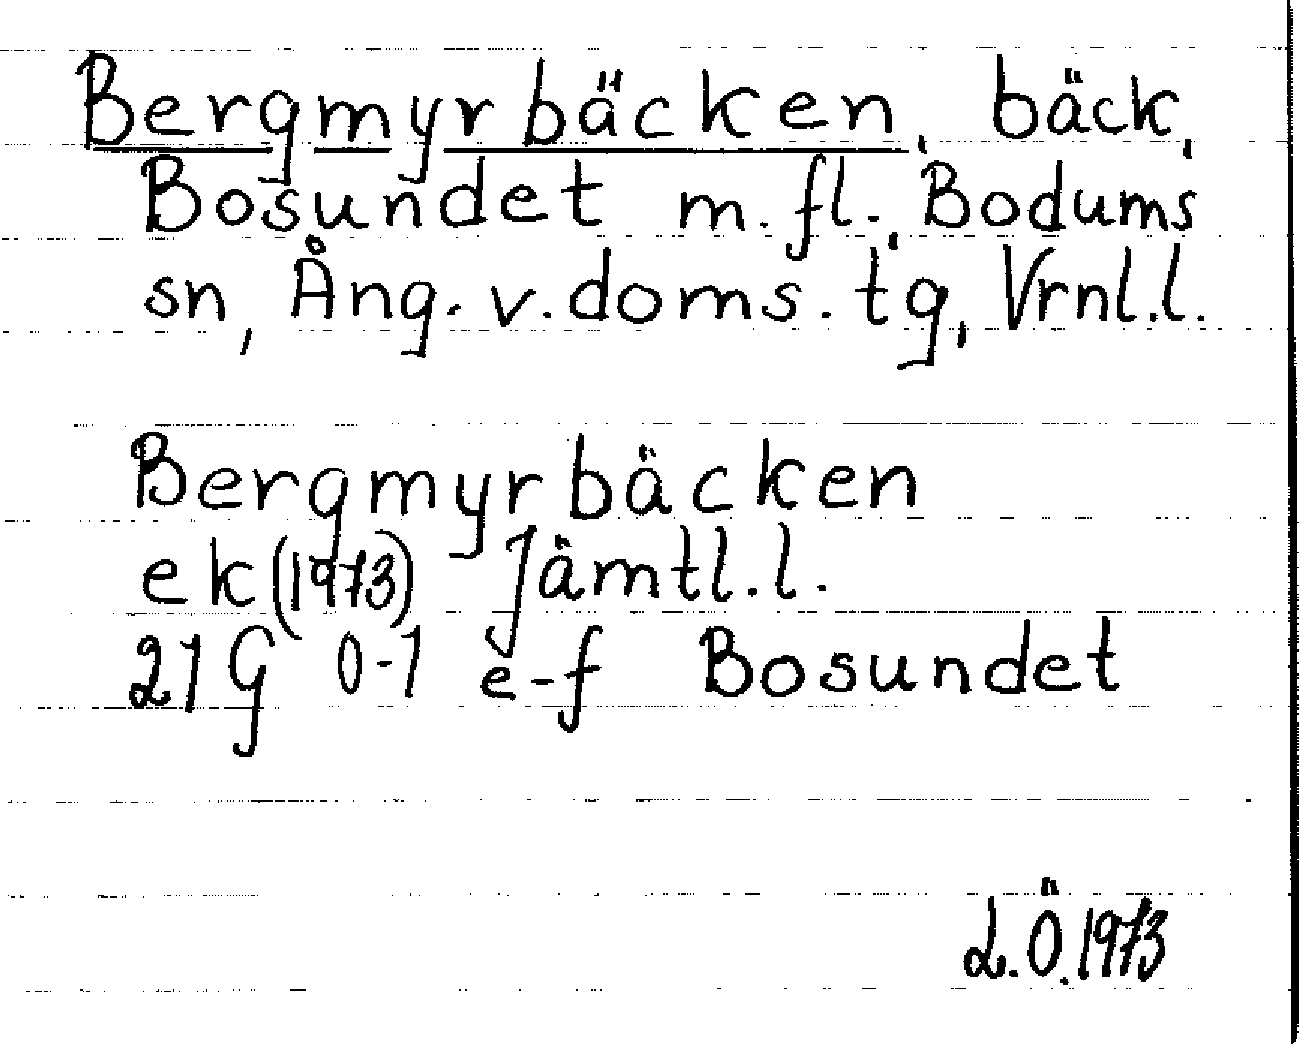 Bergmyrbäcken, bäck,
Bosundet m.fl., Bodums
sn, Ång. v. doms. tg, Vrnl.l.
Bergmyrbäcken
ek (1973) Jämtl.l.
21G 0-1 e-f Bosundet
L.Ö. 1973